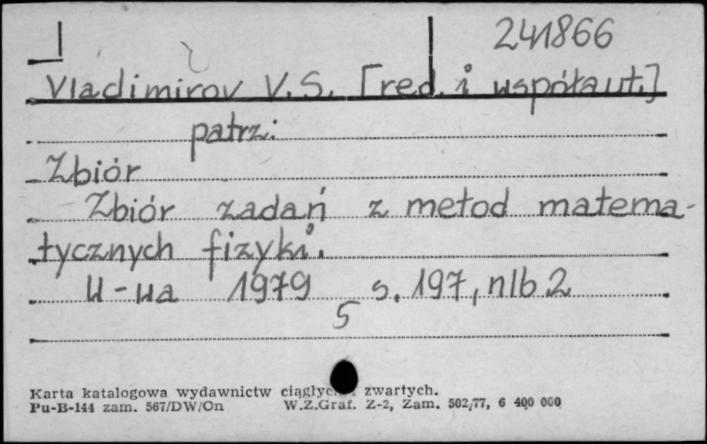 241866
Vladimirov V.S. [red. i współaut.]
patrz:
Zbiór
Zbiór zadań z metod matema-
tycznych fizyki.
W-wa 1979 s. 197, nlb. 2
5
Karta katalogowa wydawnictw ciągłych i zwartych.
Pu-B-144 zam. 567/DW/On W.Z.Graf. Z-2, Zam. 502/77, 6 400 000